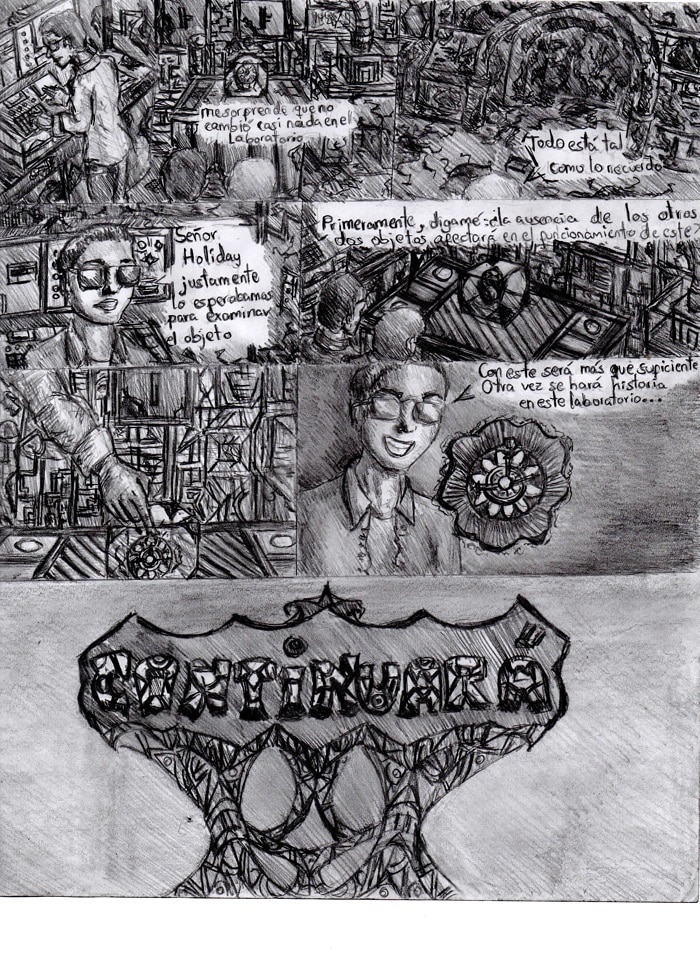 me sorprende que no
cambió casi nada en el
Laboratorio
Todo está tal
como lo recuerdo
Señor
Holiday
justamente
lo esperábamos
para examinar
el objeto
Primeramente, digame: ¿la ausencia de los otros
dos objetos afectara en el funcionamiento de este?
Con este será más que suficiente
Otra vez se hará historia
en este laboratorio...
CONTINUARÁ